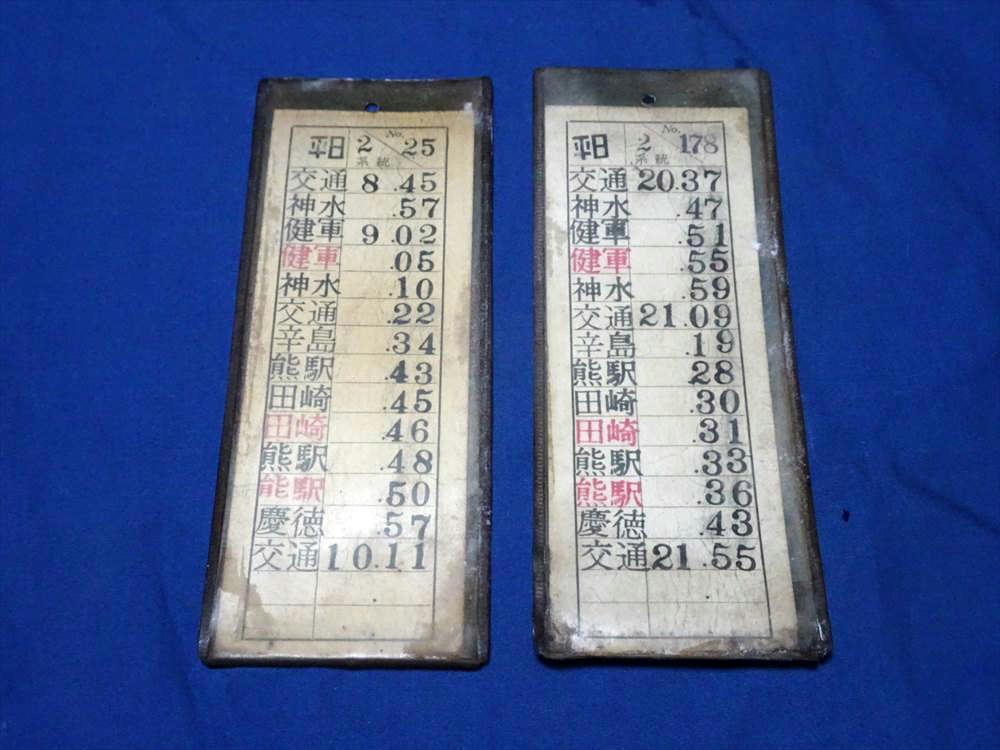 平日 2系統 No. 25
交通 8.45
神水 .57
健軍 9.02
健軍 .05
神水 .10
交通 .22
辛島 .34
熊駅 .43
田崎 .45
田崎 .46
熊駅 .48
熊駅 .50
慶徳 .57
交通 10.11
平日 2系統 No. 178
交通 20.37
神水 .47
健軍 .51
健軍 .55
神水 .59
交通 21.09
辛島 .19
熊駅 28
田崎 .30
田崎 .31
熊駅 .33
熊駅 .36
慶徳 .43
交通 21.55